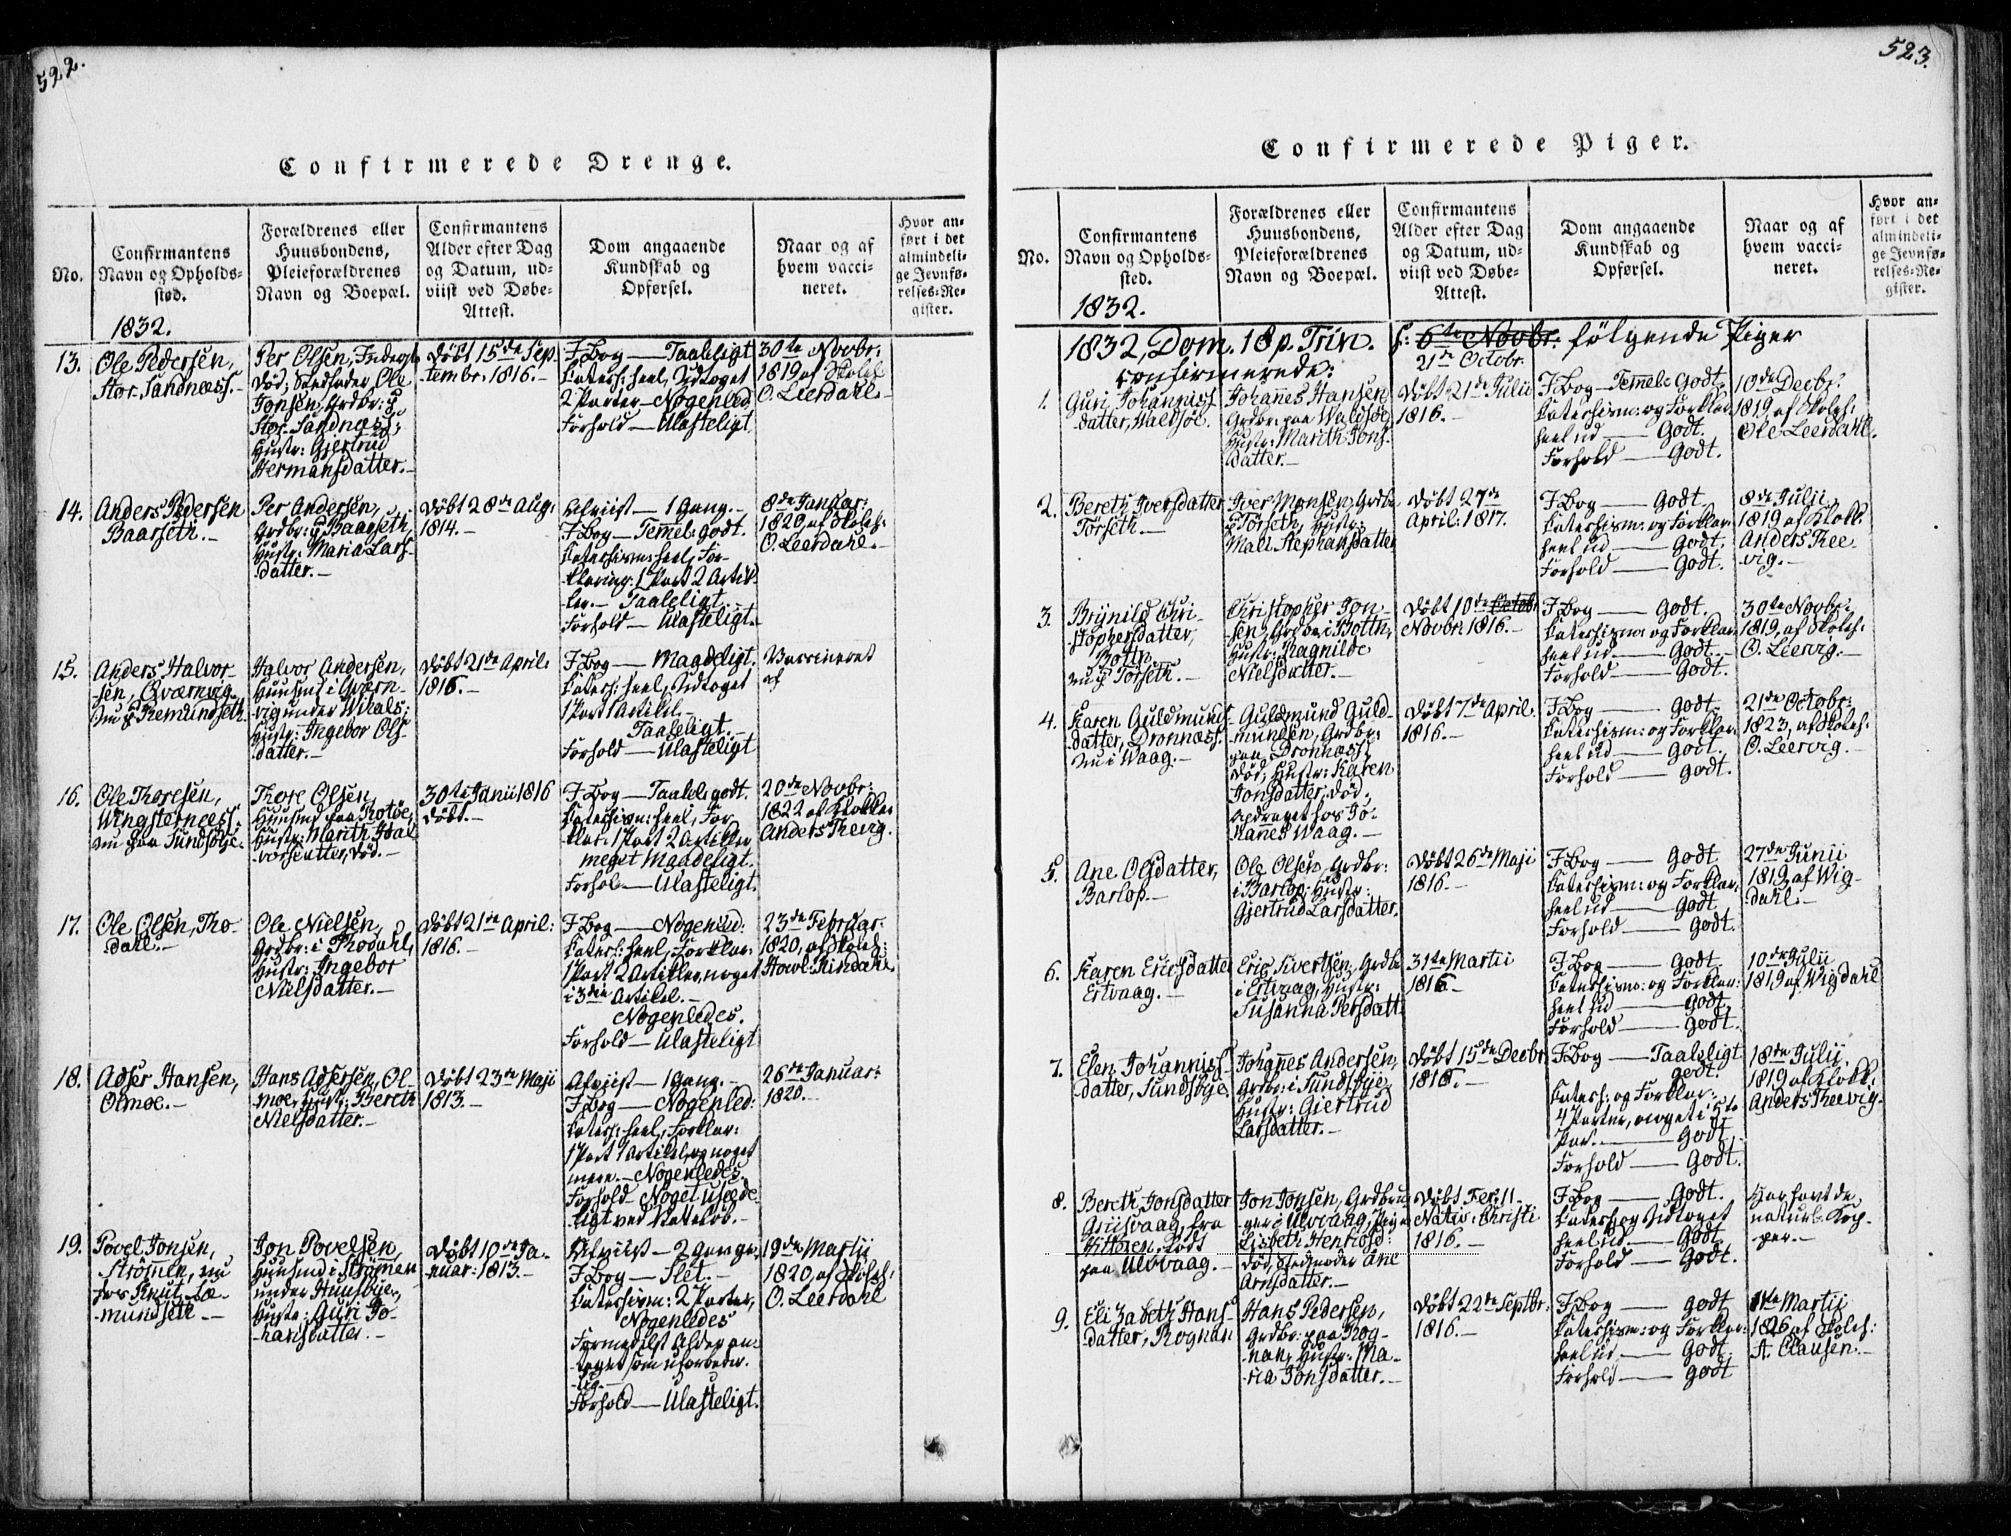 522.
Confirmerede Drenge.
No.
Confirmantens
Navn og Opholds-
sted.
Forældrenes eller
Huusbondens,
Pleieforældrenes
Navn og Boepæl.
Confirmantens
Alder efter Dag
og Datum, ud-
viist ved Døbe-
Attest.
Dom angaaende
Kundskab og
Opførsel.
Naar og af
hvem vacci-
neret.
Hvor an-
ført i det
almindeli-
ge Jevnfø-
relses-Re-
gister.
1832.
13.
Ole Pedersen,
Stor. Sandnæss.
Per Olsen,
død; Stedfader Ole
Jonsen, Grdbr:
Stor. Sandnæss;
Hustr: Gjertrud
Hermansdatter.-
Døbt 15de Sep-
tembr: 1816.-
I Bog — Taaleligt
Catech: heel, Udtoget
2 Parter - Nogenled
Forhold — Ulasteligt
30te Novbr:
1819 af Skoleh:
O. Leerdahl.-
14.
Anders Pedersen
Baarseth.-
Per Andersen,
Grdbr: p Baarseth,
Hustr: Maria Lars-
datter.-
Døbt 28de Aug:
1814.-
Afviist — 1 Gang.-
I Bog — Temmel: godt.
Catechism: heel, For-
klaring: 1 Part 2 Artik-
ler.- Taaleligt.
Forhold — Ulasteligt.
8de Januar:
1820, af Skoleh:
O. Leerdahl.-
15.
Anders Halvor-
sen, Qværnvig
nu p Remundseth
Halvor Andersen,
Huusmd i Qværn-
vig under Wikals;
Hustr: Ingebor Ols-
datter.-
Døbt 21de April:
1816.-
I Bog — Maadeligt.
Catech: heel, Udtoget
1 Part 1 Artikel.-
Taaleligt.
Forhold — Ulasteligt
Vaccineret
af
16.
Ole Thoresen,
Wingsternæss:
nu paa Sundsøje.
Thore Olsen,
Huusmd paa
Hustr: Marith Hal-
vorsdatter, død.-
30te Junii 1816
døbt.-
I Bog — Taalel: godt.
Catechism: heel, For-
klar: 1 Part 2 Artikler
meget Maadeligt.
Forhol — Ulasteligt.
20de Novbr:
1822 af Klokker
Anders Reevig.
17.
Ole Olsen, Tho-
dahl.-
Ole Nielsen,
Grdbr: i Thodahl,
Hustr: Ingebor
Nielsdatter.-
Døbt 21de April:
1816.-
I Bog — Nogenled:
Catech: heel, Forklar:
1 Part 2 Artikler, noget
i 3die Artikel.-
Nogenledes.
Forhold — Ulasteligt
23de Februar:
1820, af Skoleh:
Rindahl.
18.
Adser Hansen,
Olmoe.-
Hans Adsersen, Ol-
moe, Hustr: Bereth
Nielsdatter.-
Døbt 23de Maji
1813.-
Afviist — 1 Gang.-
I Bog — Nogenled:
Catech: heel, Forklar:
1 Part 1 Artikel, og noget
mere.- Nogenledes.
Forhold - Noget usæde-
ligt ved
26de Januar:
1820.-
19.
Povel Jonsen,
Strömen, nu
hos Knut Læ-
mundsete.-
Jon Povelsen,
Huusmd i Strömen
under Huusbye,
Hustr: Guri Jo-
hansdatter.-
Døbt 10de Ja-
nuar: 1813.-
Afviist — 2 Gange
I Bog — Slet.-
Catechism: 2 Parter,
Nogenledes
Formedelst Alder an-
taget som uforbeder-
lig.-
Forhold — Ulasteligt.
19de Martii
1820, af Skoleh:
O. Leerdahl
523.
Confirmerede Piger.
No.
Confirmantens
Navn og Opholds-
sted.
Forældrenes eller
Huusbondens,
Pleieforældrenes
Navn og Boepæl.
Confirmantens
Alder efter Dag
og Datum, ud-
viist ved Døbe-
Attest.
Dom angaaende
Kundskab og
Opførsel.
Naar og af
hvem vacci-
neret.
Hvor an-
ført i det
almindeli-
ge Jevnfø-
relses-Re-
gister.
1832.
1832, Dom. 18 p. Trin. f: 6te Novbr. følgende Piger
21de Octobr.
confirmerede:
1.
Guri Johanniss
datter, Waldsøe.
Johannes Hansen
Grdbr: paa Waldsøe,
Hustr: Marith Jons-
datter.-
Døbt 21de Julii
1816.-
I Bog - Temmel: Godt.
Catechism: og Forklar:
heel ud — Godt.
Forhold — Godt.
10de Decbr:
1819 af Skoleh:
Ole Leerdahl.
2.
Bereth Iversdatter
Torseth.-
Iver Monsen, Grdbr
p Torseth, Hustr:
Mali Stephansdatter
Døbt 27de
April: 1817.
I Bog — Godt.
Catechism: og Forklar:
heel ud — Godt.
Forhold — Godt.
8de Julii
1819 af Klokk:
Anders Ree-
vig.-
3.
Brynild Chri-
stophersdatter,
Bottn,
nu p Torseth.-
Christopher Jon-
sen, Grdbr: i Bottn,
Hustr: Ragnilde
Nielsdatter.-
Døbt 10de Octobr
Novbr: 1816.-
I Bog — Godt.
Catechism: og Forklar:
heel ud — Godt.-
Forhold — Godt.
30te Novbr:
1819, af Skoleh:
O. Leervig.-
4.
Karen Guldmunds-
datter, Dronnæss.
nu i Waag.-
Guldmund Guld-
mundsen, Grdbr:
paa Dronnæss,
død, Hustr: Karen
Jonsdatter, død,
opdraget hos Jo-
hannes Waag.-
Døbt 7de April
1816.-
I Bog — Godt.
Catechism: og Forklar:
heel ud — Godt.
Forhold — Godt.
21de Octobr:
1823, af Skoleh:
O. Leervig.-
5.
Ane Olsdatter,
Barlop.-
Ole Olsen, Grdbr:
i Barlop, Hustr:
Gjertrud Larsdatter.
Døbt 26de Maji
1816.-
I Bog — Godt
Catechism: og Forklar:
heel ud — Godt.
Forhold — Godt.
27de Junii
1819, af Wig-
dahl.-
6.
Karen Ericsdatter
Ertvaag.-
Eric Sivertsen, Grdbr
i Ertvaag, Hustr:
Susanna Persdatt:
31te Martii
1816.-
I Bog — Godt.
Catechism: og Forklar:
heel ud — Godt.
Forhold — Godt.
10de Julii
1819 af Wigdahl
7.
Elen Johanniss
datter, Sundsøye.
Johannes Andersen,
Grdbr: i Sundsøye,
Hustr: Gjertrud
Larsdatter.-
Døbt 15de Decbr:
1816.-
I Bog — Taaleligt
godt.
Catech: og Forklar:
4 Parter, noget i 5te
Par.— Godt
Forhold — Godt.
18de Julii
1819 af Klokk:
Anders Reevig.
8.
Bereth Jonsdatter
Griisvaag, fra
paa Ulvvaag.-
Jon Jonsen, Grdbru-
ger i Ulvvaag,
Lisbeth Henricsd:
død, Stedmoder Ane
Arnsdatter.-
Døbt Fer: 11
Nativ: Christi
1816.-
I Bog — Godt.
Catech og Udtoget
heel ud — Godt
Forhold — Godt.
Har havt de
naturl: Kop-
per.-
9.
Elizabeth Hans-
datter, Rognan
Hans Pedersen,
Grdbr: paa Rog-
nan, Hustr: Ma-
ria Jonsdatter.-
Døbt 22de Septbr:
1816.-
I Bog — Godt
Catechism: og Forklar:
heel ud — Godt.
Forhold — Godt
Martii
1826 af Skoleh:
A. Clausen.-